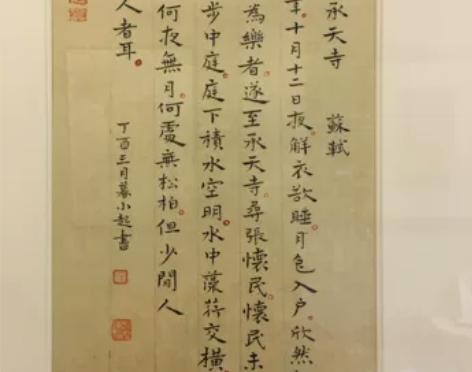 承天寺 蘇軾
年十月十二日夜解衣欲睡月色入户欣然
為樂者遂至承天寺尋張懷民懷民未
步中庭庭下積水空明水中藻荇交橫
何夜無月何處無松柏但少閒人
人者耳
丁酉三月暮小超書